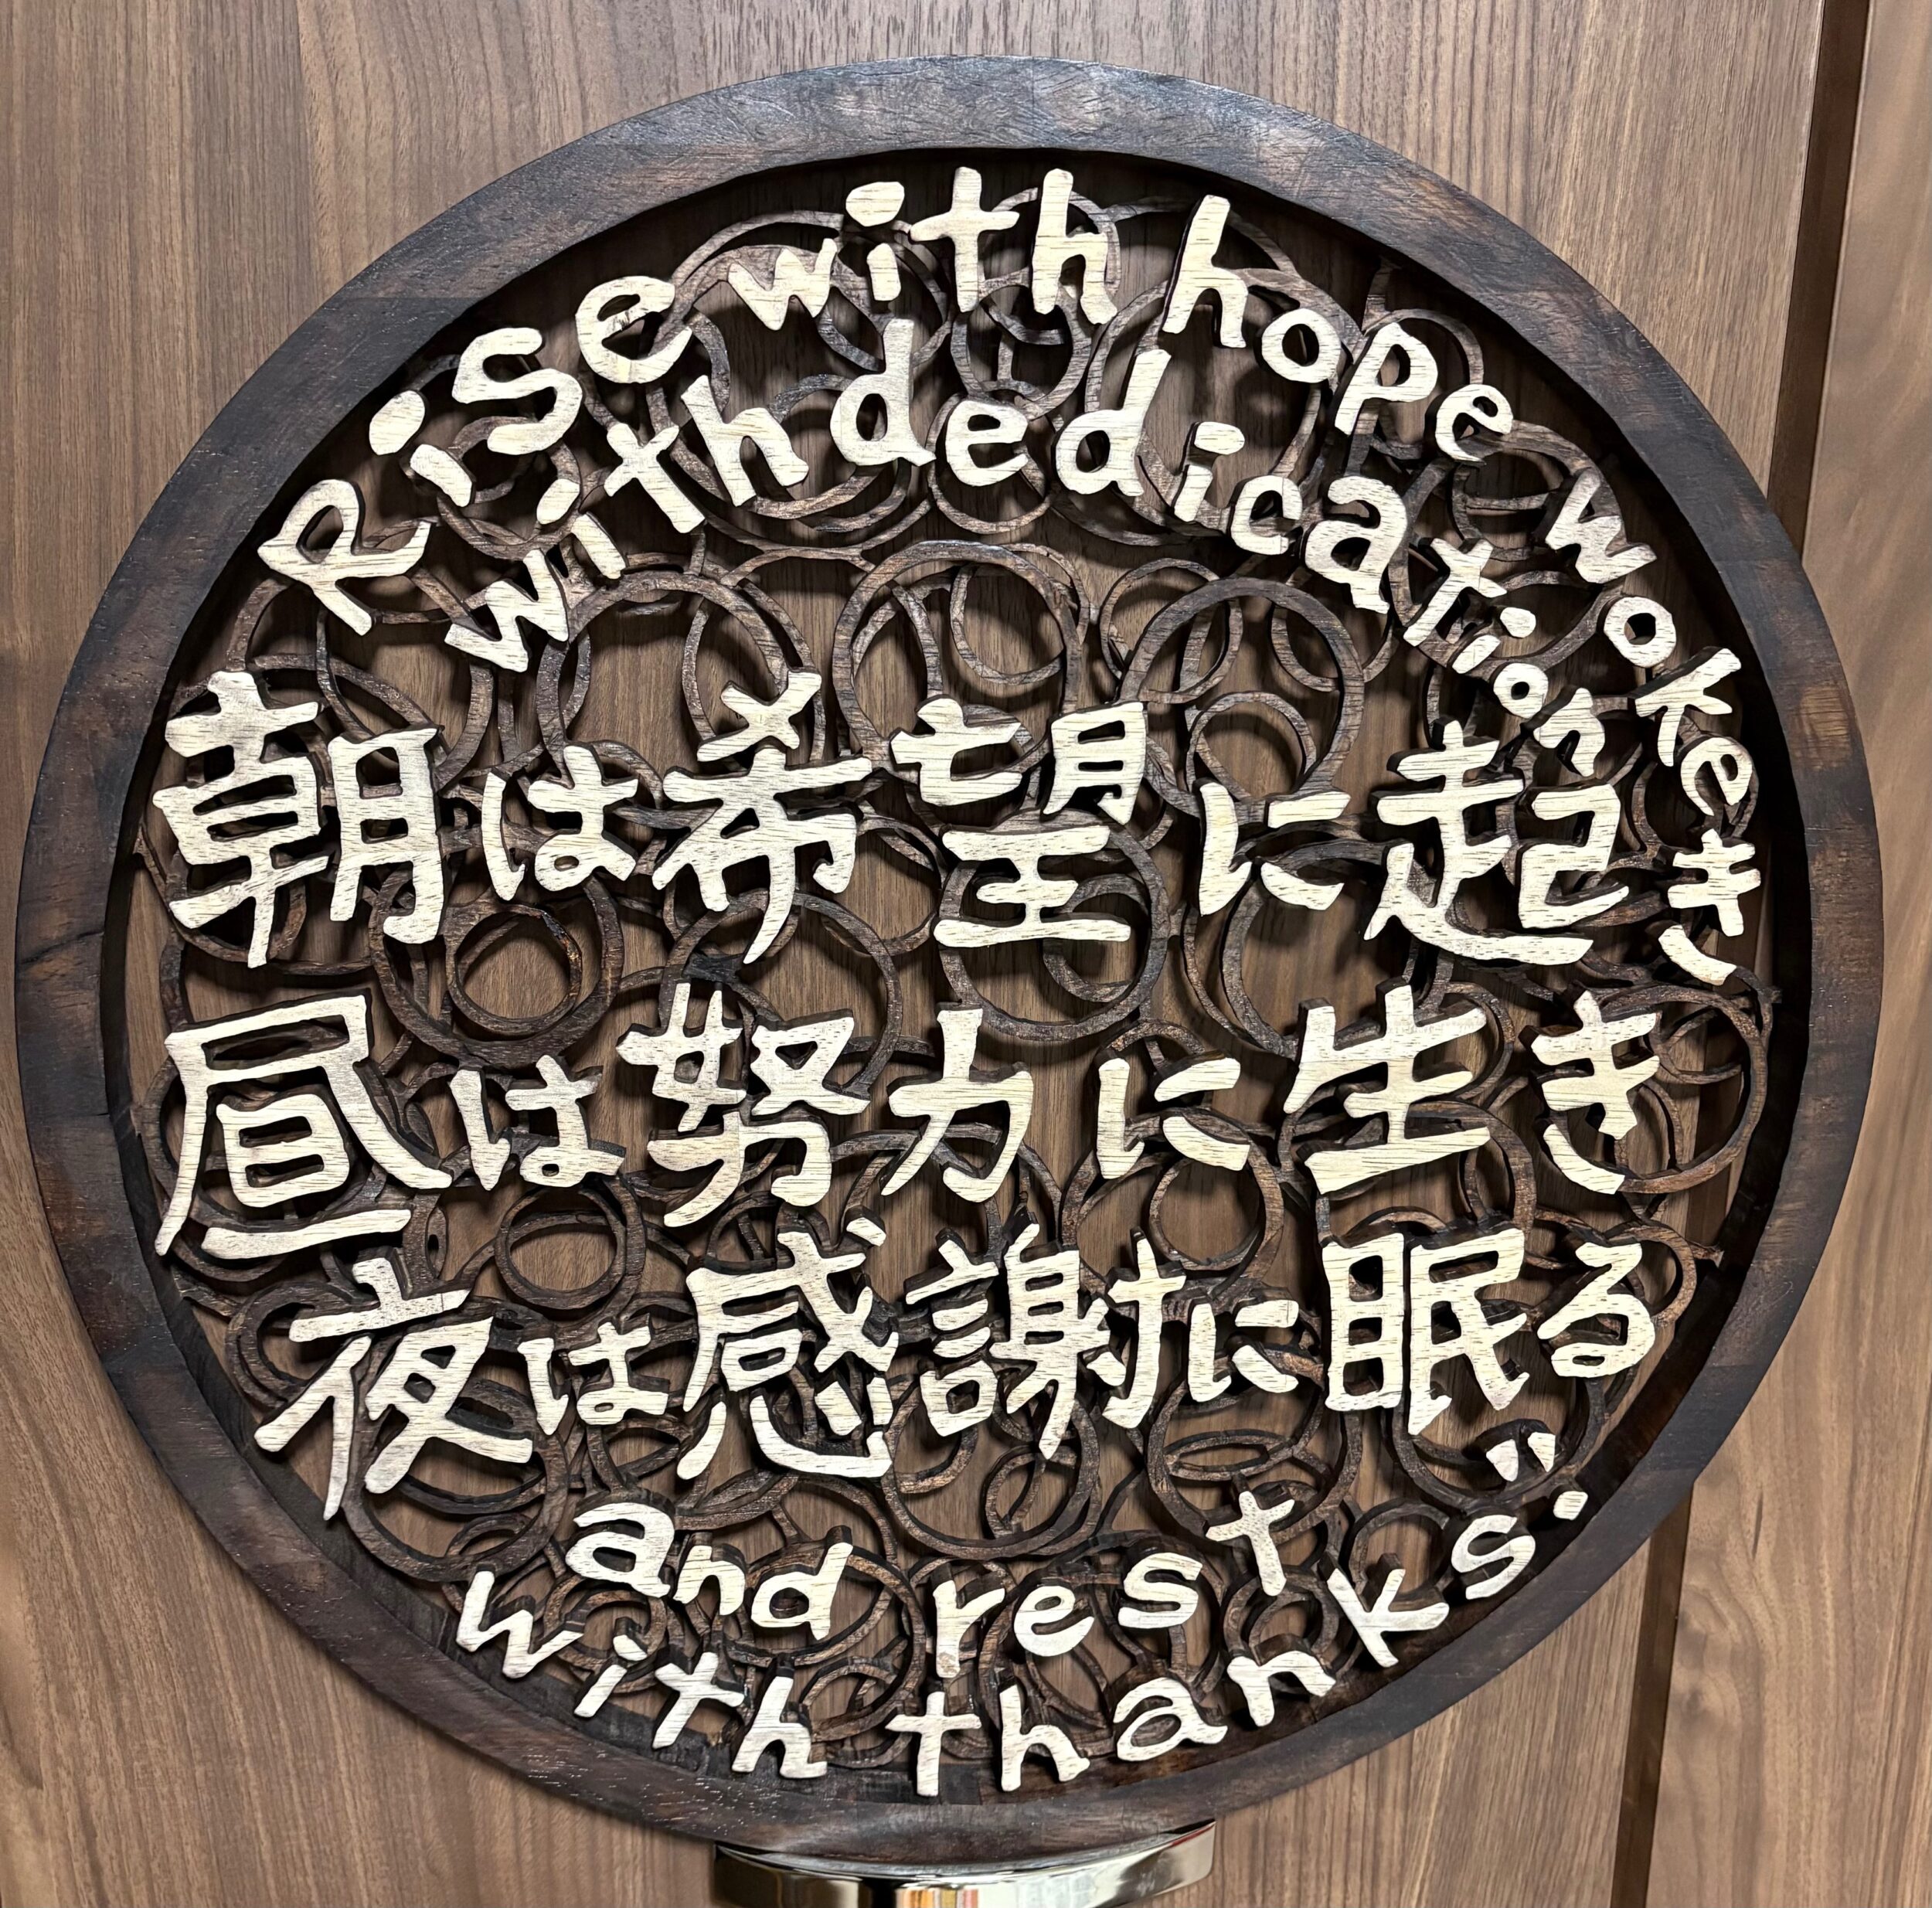 Rise with hope woke
with dedication
朝は希望に起き
昼は努力に生き
夜は感謝に眠る
and rest
with thanks."